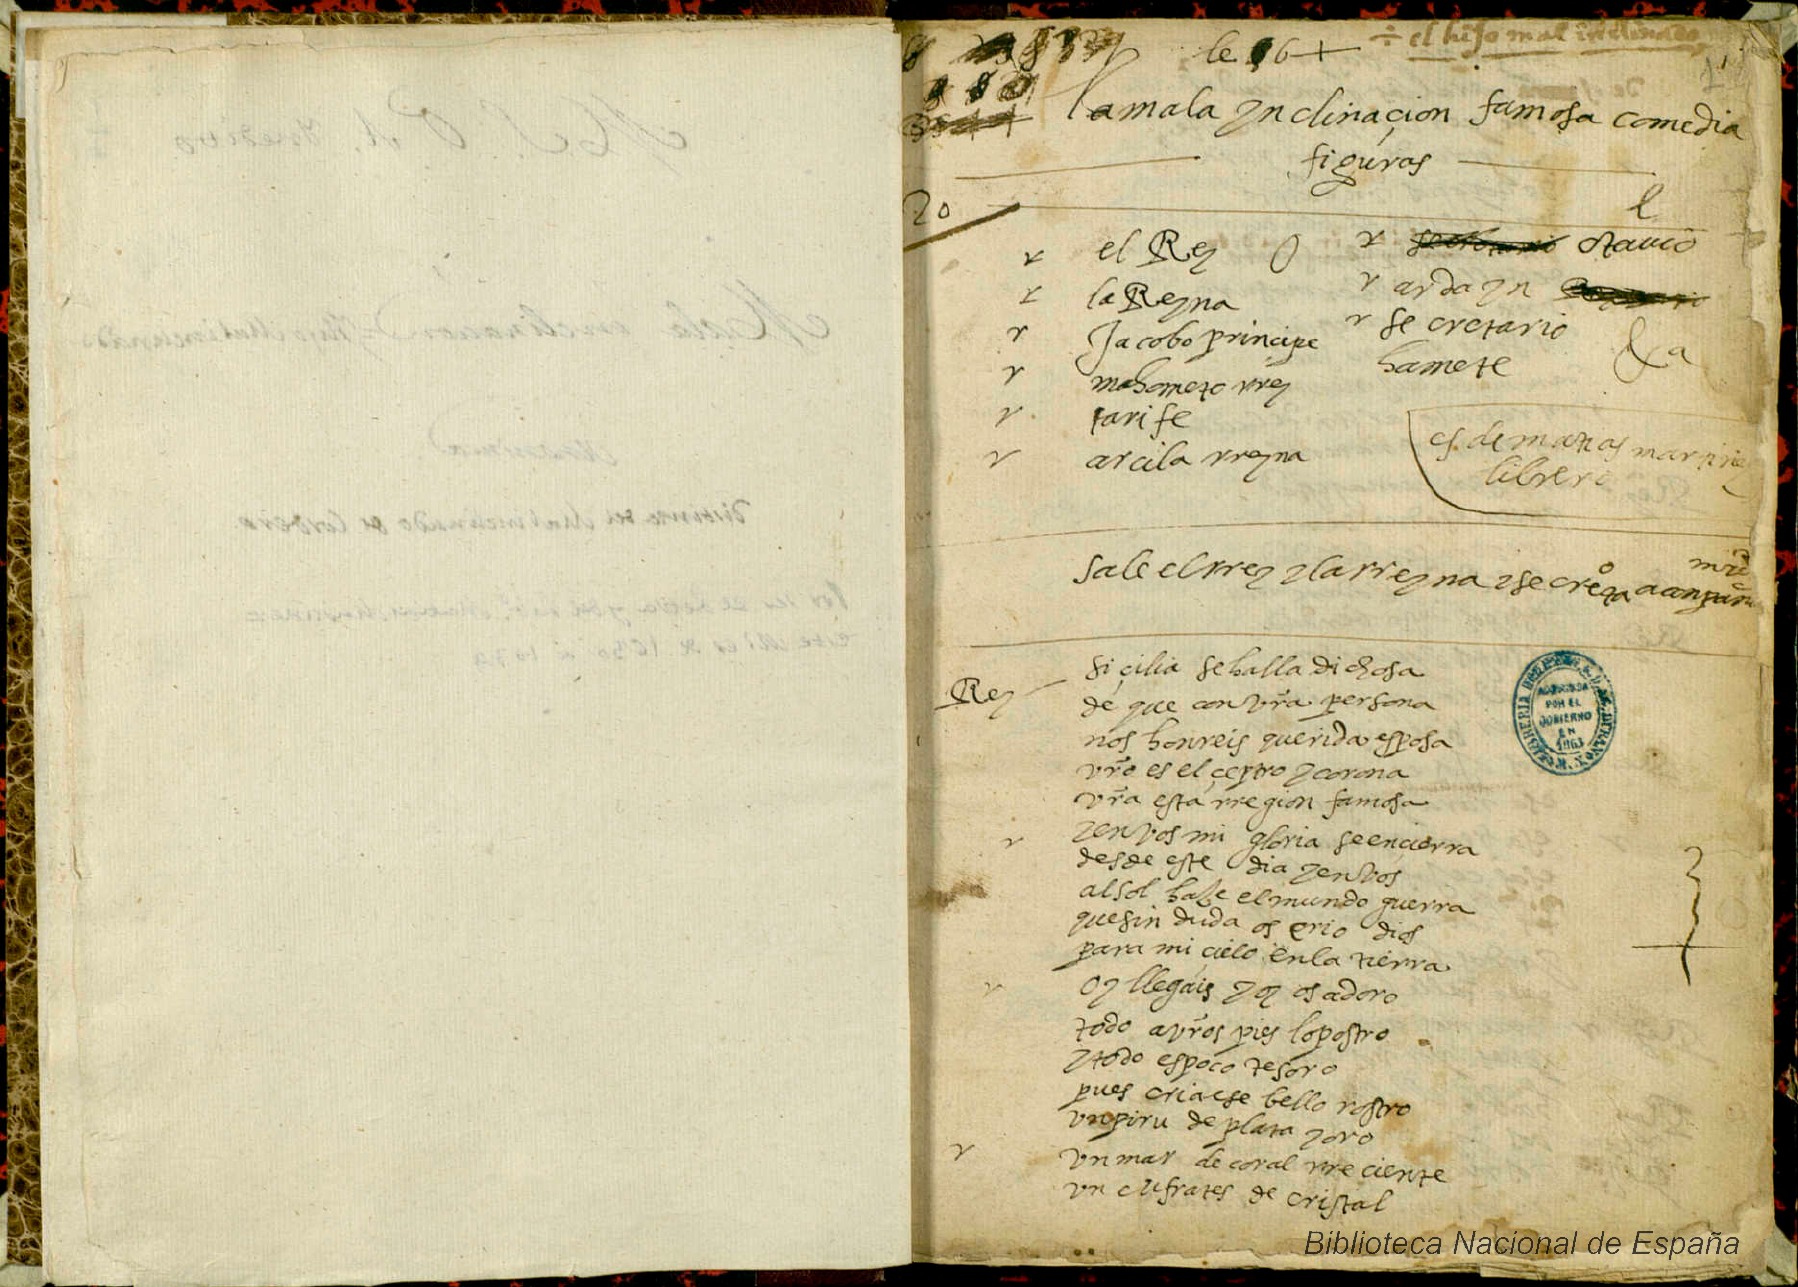 ÷ el hijo mal inclinado
le 16 +
la mala ynclinaçion famosa comedia
figuras
20
el Rey
la Reyna
Jacobo principe
mahometo rrey
tarife
arcila rreyna
otauio
ardayn
secretario
hamete
&a
es de matias martinez
librero
sale el rrey y la rreyna y secreto acompañami
Rey
siçilia se halla dichosa
de que con vra persona
nos honreis querida esposa
vro es el çeptro y corona
vra esta rregion famosa
y en vos mi gloria se ençierra
desde este dia y en vos
al sol haze el mundo guerra
que sin duda os crio dios
para mi çielo en la tierra
oy llegais y oy os adoro
todo a vros pies lo postro
y todo es poco tesoro
pues cria ese bello rostro
vn piru de plata y oro
vn mar de coral rreciente
vn eufrates de cristal
ADQUIRIDA
POR EL
GOBIERNO
EN
1863
Biblioteca Nacional de España